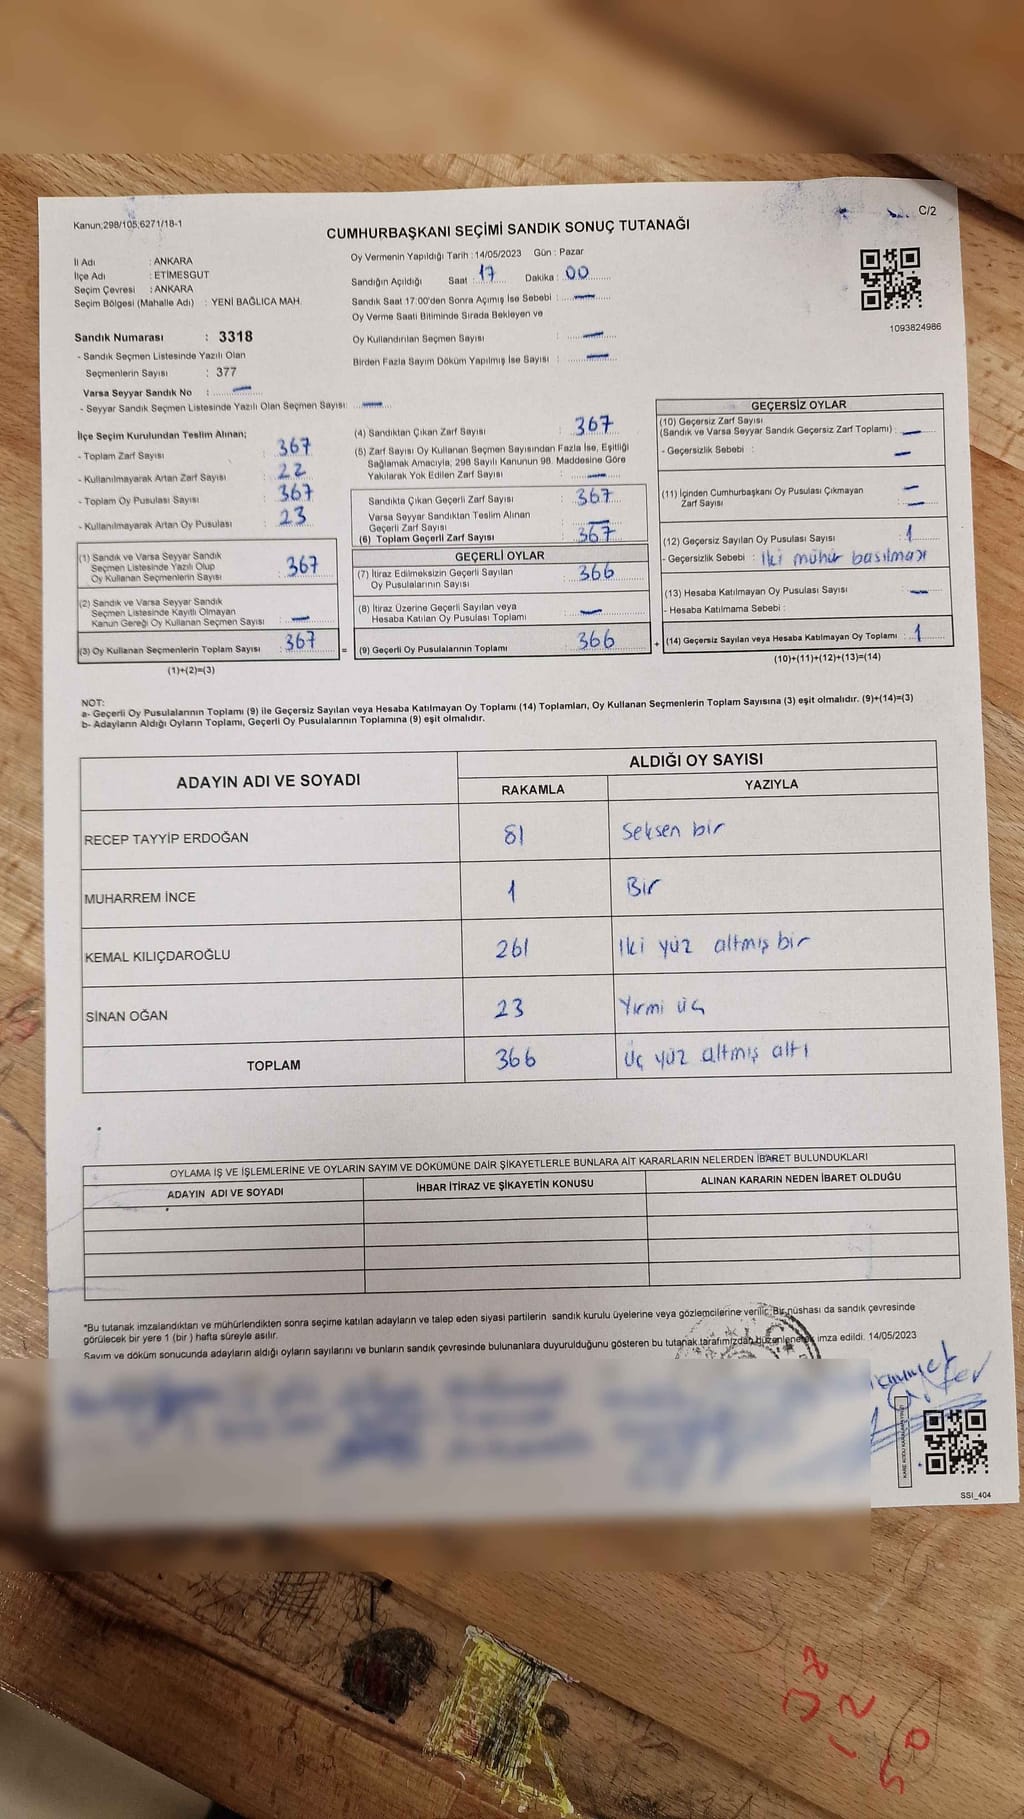 Kanun;298/105;6271/18-1
C/2
CUMHURBAŞKANI SEÇİMİ SANDIK SONUÇ TUTANAĞI
İl Adı : ANKARA
İlçe Adı : ETİMESGUT
Seçim Çevresi : ANKARA
Seçim Bölgesi (Mahalle Adı) : YENİ BAĞLICA MAH.
Oy Vermenin Yapıldığı Tarih : 14/05/2023 Gün : Pazar
Sandığın Açıldığı Saat : 17 Dakika : 00
Sandık Saat 17:00'den Sonra Açımış İse Sebebi : —
Oy Verme Saati Bitiminde Sırada Bekleyen ve
Oy Kullandırılan Seçmen Sayısı : —
Birden Fazla Sayım Döküm Yapılmış İse Sayısı : —
1093824986
Sandık Numarası : 3318
- Sandık Seçmen Listesinde Yazılı Olan
Seçmenlerin Sayısı : 377
Varsa Seyyar Sandık No : —
- Seyyar Sandık Seçmen Listesinde Yazılı Olan Seçmen Sayısı: —
İlçe Seçim Kurulundan Teslim Alınan;
- Toplam Zarf Sayısı : 367
- Kullanılmayarak Artan Zarf Sayısı : 22
- Toplam Oy Pusulası Sayısı : 367
- Kullanılmayarak Artan Oy Pusulası : 23
(1) Sandık ve Varsa Seyyar Sandık
Seçmen Listesinde Yazılı Olup
Oy Kullanan Seçmenlerin Sayısı : 367
(2) Sandık ve Varsa Seyyar Sandık
Seçmen Listesinde Kayıtlı Olmayan
Kanun Gereği Oy Kullanan Seçmen Sayısı : —
(3) Oy Kullanan Seçmenlerin Toplam Sayısı : 367
(1)+(2)=(3)
=
(4) Sandıktan Çıkan Zarf Sayısı : 367
(5) Zarf Sayısı Oy Kullanan Seçmen Sayısından Fazla İse, Eşitliği
Sağlamak Amacıyla, 298 Sayılı Kanunun 98. Maddesine Göre
Yakılarak Yok Edilen Zarf Sayısı : —
Sandıkta Çıkan Geçerli Zarf Sayısı : 367
Varsa Seyyar Sandıktan Teslim Alınan
Geçerli Zarf Sayısı : —
(6) Toplam Geçerli Zarf Sayısı : 367
GEÇERLİ OYLAR
(7) İtiraz Edilmeksizin Geçerli Sayılan
Oy Pusulalarının Sayısı : 366
(8) İtiraz Üzerine Geçerli Sayılan veya
Hesaba Katılan Oy Pusulası Toplamı : —
(9) Geçerli Oy Pusulalarının Toplamı : 366
+
GEÇERSİZ OYLAR
(10) Geçersiz Zarf Sayısı
(Sandık ve Varsa Seyyar Sandık Geçersiz Zarf Toplamı) : —
- Geçersizlik Sebebi : —
(11) İçinden Cumhurbaşkanı Oy Pusulası Çıkmayan
Zarf Sayısı : —
(12) Geçersiz Sayılan Oy Pusulası Sayısı : 1
- Geçersizlik Sebebi : İki mühür basılması
(13) Hesaba Katılmayan Oy Pusulası Sayısı : —
- Hesaba Katılmama Sebebi :
(14) Geçersiz Sayılan veya Hesaba Katılmayan Oy Toplamı : 1
(10)+(11)+(12)+(13)=(14)
NOT:
a- Geçerli Oy Pusulalarının Toplamı (9) ile Geçersiz Sayılan veya Hesaba Katılmayan Oy Toplamı (14) Toplamları, Oy Kullanan Seçmenlerin Toplam Sayısına (3) eşit olmalıdır. (9)+(14)=(3)
b- Adayların Aldığı Oyların Toplamı, Geçerli Oy Pusulalarının Toplamına (9) eşit olmalıdır.
ADAYIN ADI VE SOYADI
ALDIĞI OY SAYISI
RAKAMLA YAZIYLA
RECEP TAYYİP ERDOĞAN 81 Seksen bir
MUHARREM İNCE 1 Bir
KEMAL KILIÇDAROĞLU 261 İki yüz altmış bir
SİNAN OĞAN 23 Yirmi üç
TOPLAM 366 Üç yüz altmış altı
OYLAMA İŞ VE İŞLEMLERİNE VE OYLARIN SAYIM VE DÖKÜMÜNE DAİR ŞİKAYETLERLE BUNLARA AİT KARARLARIN NELERDEN İBARET BULUNDUKLARI
ADAYIN ADI VE SOYADI İHBAR İTİRAZ VE ŞİKAYETİN KONUSU ALINAN KARARIN NEDEN İBARET OLDUĞU
*Bu tutanak imzalandıktan ve mühürlendikten sonra seçime katılan adayların ve talep eden siyasi partilerin sandık kurulu üyelerine veya gözlemcilerine verilir. Bir nüshası da sandık çevresinde
görülecek bir yere 1 (bir ) hafta süreyle asılır.
Sayım ve döküm sonucunda adayların aldığı oyların sayılarını ve bunların sandık çevresinde bulunanlara duyurulduğunu gösteren bu tutanak tarafımızdan düzenlenerek imza edildi. 14/05/2023
SSI_404